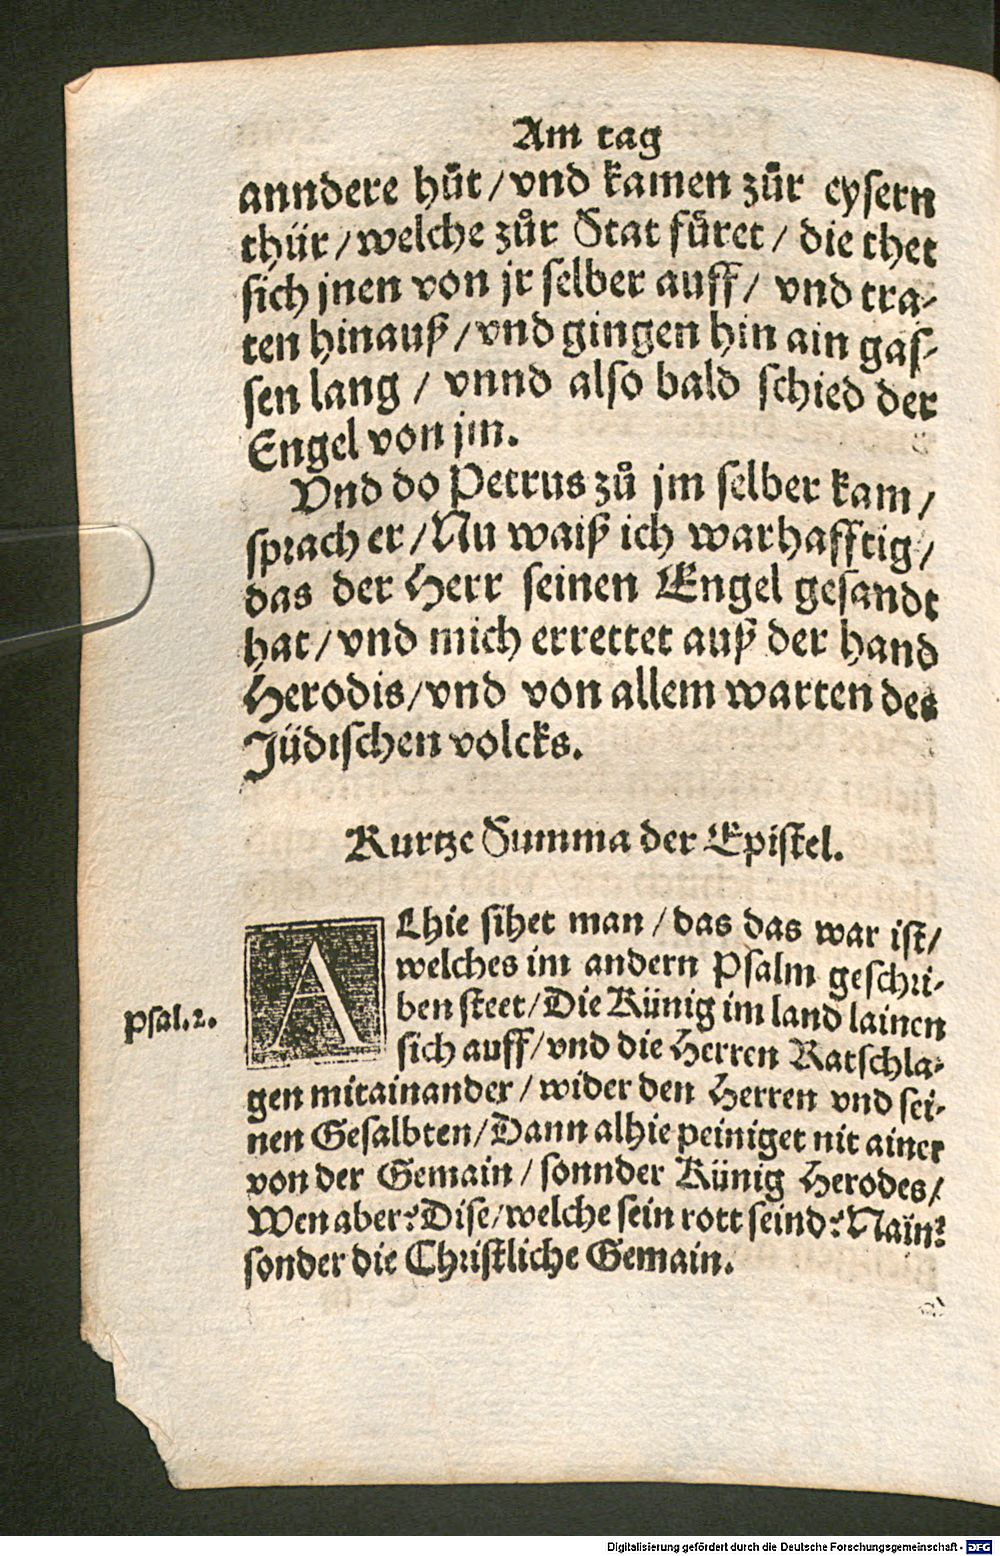 Am tag
anndere hůt / vnd kamen zůr eysern
thür / welche zůr Stat füret / die thet
sich jnen von jr selber auff / vnd tra-
ten hinauß / vnd gingen hin ain gas-
sen lang / vnnd also bald schied der
Engel von jm.
Vnd do Petrus zů jm selber kam /
sprach er / Nu waiß ich warhafftig /
das der Herr seinen Engel gesandt
hat / vnd mich errettet auß der hand
Herodis / vnd von allem warten des
Jüdischen volcks.
Kurtze Summa der Epistel.
Alhie sihet man / das das war ist /
welches im andern Psalm geschri-
Psal. 2.
ben steet / Die Künig im land lainen
sich auff / vnd die Herren Ratschla-
gen mitainander / wider den Herren vnd sei-
nen Gesalbten / Dann alhie peiniget nit ainer
von der Gemain / sonnder Künig Herodes /
Wen aber? Dise / welche sein rott seind? Nain?
sonder die Christliche Gemain.
Digitalisierung gefördert durch die Deutsche Forschungsgemeinschaft - DFG